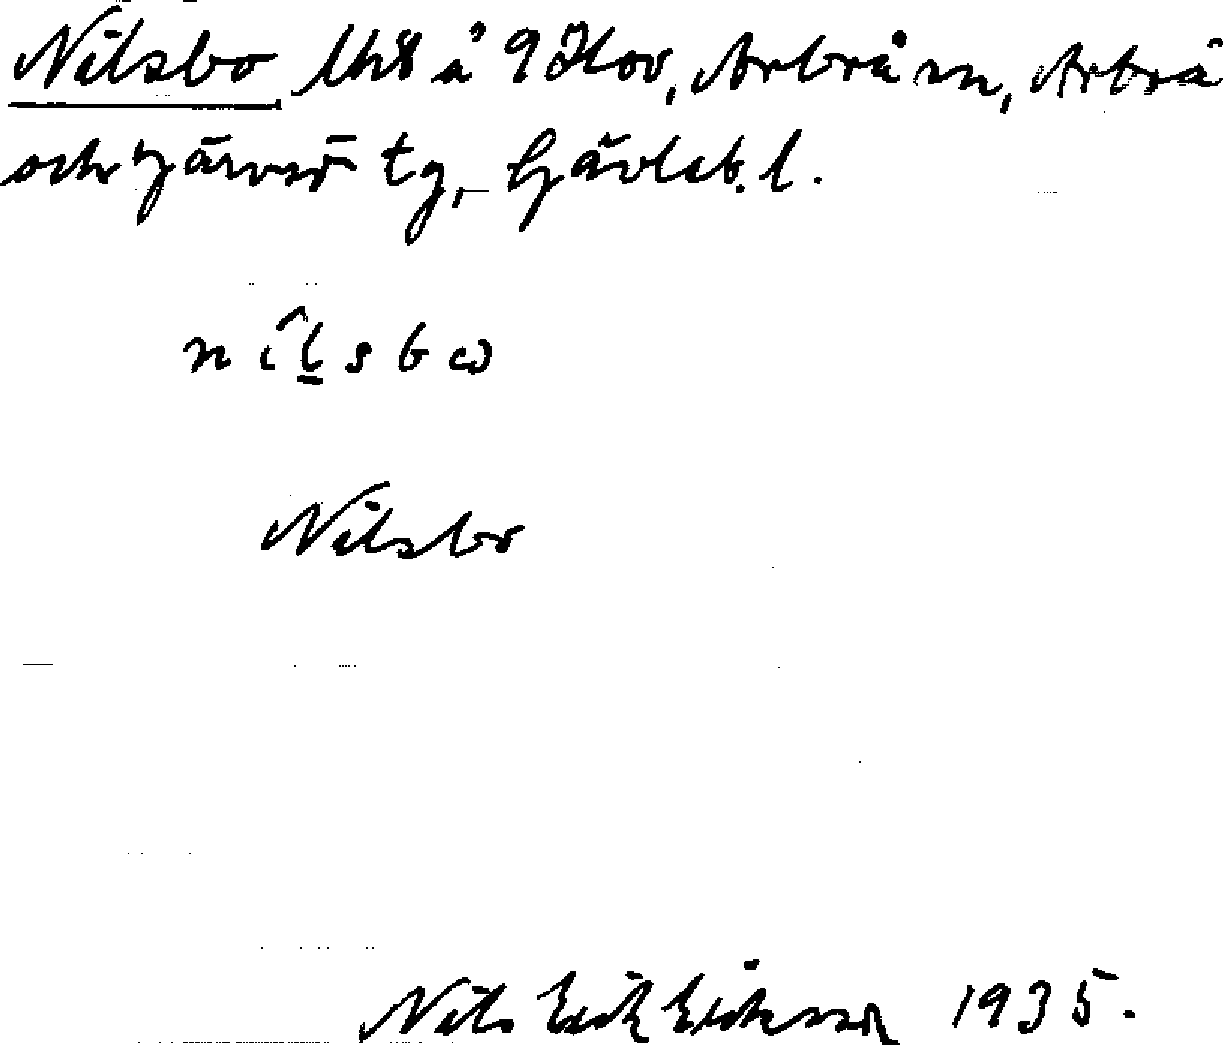 Nilsbo lht å 9 Hov, Arbrå sn, Arbrå
och Järvsö tg, Gävleb. l.
nilsbω
Nilsbo
Nils Erik Eriksson 1935.